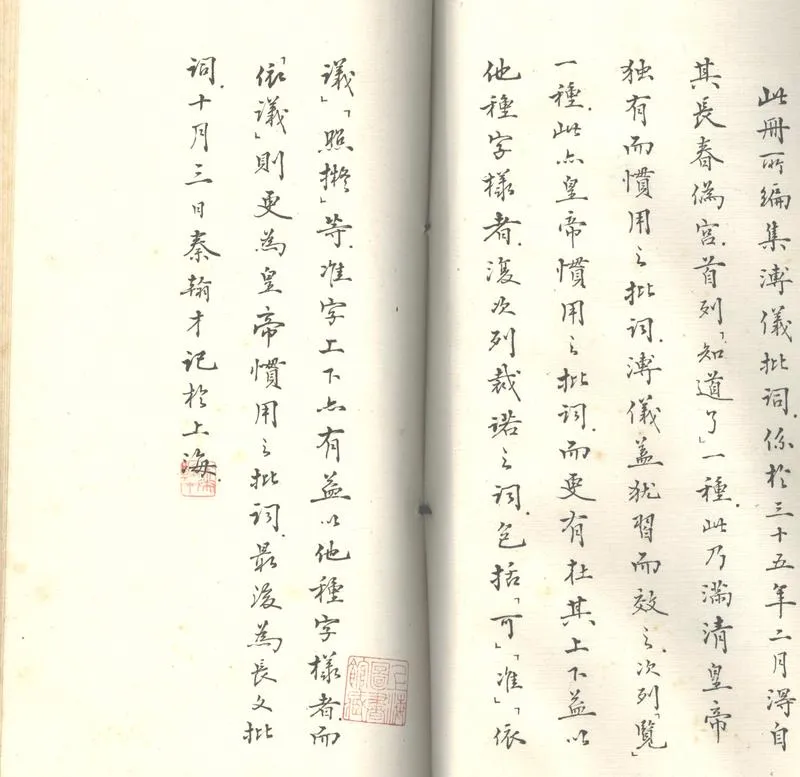 此冊所編集溥儀批詞.係於三十五年二月得自
其長春偽宮.首列「知道了」一種.此乃滿清皇帝
独有而慣用之批词.溥儀盖犹習而效之.次列「覽」
一種.此亦皇帝慣用之批词.而更有在其上下益以
他種字樣者.復次列裁諾之词.包括「可」「准」「依
議」「照擬」等.准字上下亦有益以他種字樣者.而
「依議」則更為皇帝慣用之批词.最後為長文批
词.十月三日秦翰才記於上海.
上海
圖書
館藏